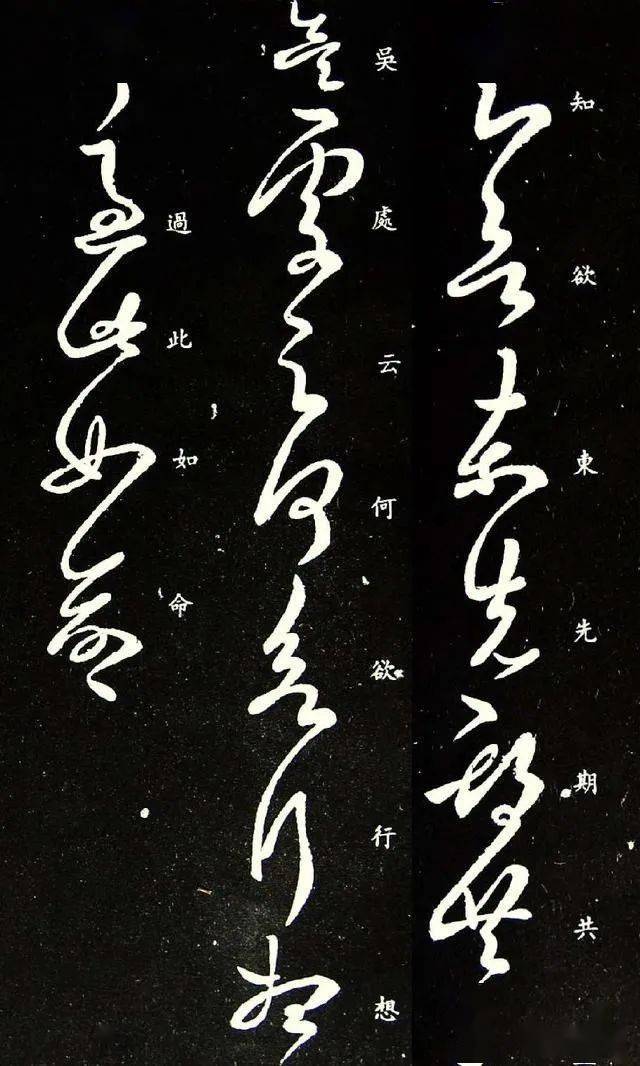 知欲東先期共
吳處云何欲行想
過此如命